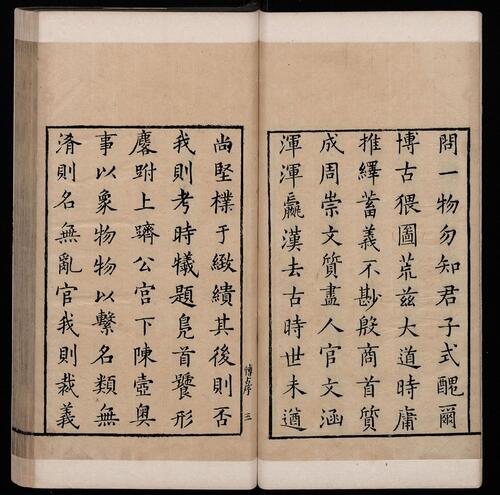 問一物勿知君子式醜爾
博古猥圖荒兹大道時庸
推繹蓄義不尠殷商首質
成周崇文質盡人官文涵
渾渾嬴漢去古時世未遒
尚堅樸于緻績其後則否
我則考時犧題鳧首饕形
麐跗上躋公官下陳壺奧
事以象物物以繫名類無
淆則名無亂官我則裁義
博古序 三